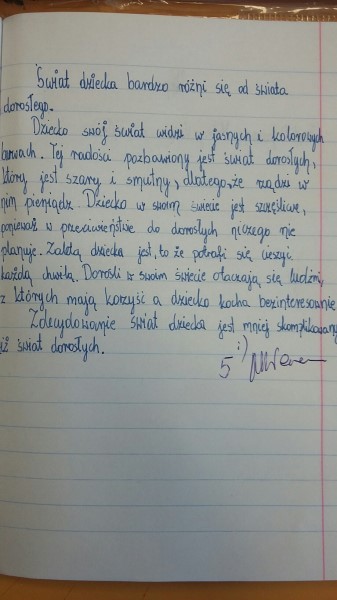 Świat dziecka bardzo różni się od świata
dorosłego.
Dziecko swój świat widzi w jasnych i kolorowych
barwach. Tej radości pozbawiony jest świat dorosłych,
który jest szary i smutny, dlatego, że rządzi w
nim pieniądz. Dziecko w swoim świecie jest szczęśliwe,
ponieważ w przeciwieństwie do dorosłych niczego nie
planuje. Zaletą dziecka jest, to że potrafi się cieszyć
każdą chwilą. Dorośli w swoim świecie otaczają się ludźmi,
z których mają korzyść a dziecko kocha bezinteresownie
Zdecydowanie świat dziecka jest mniej skomplikowany
iż świat dorosłych.
5 :)